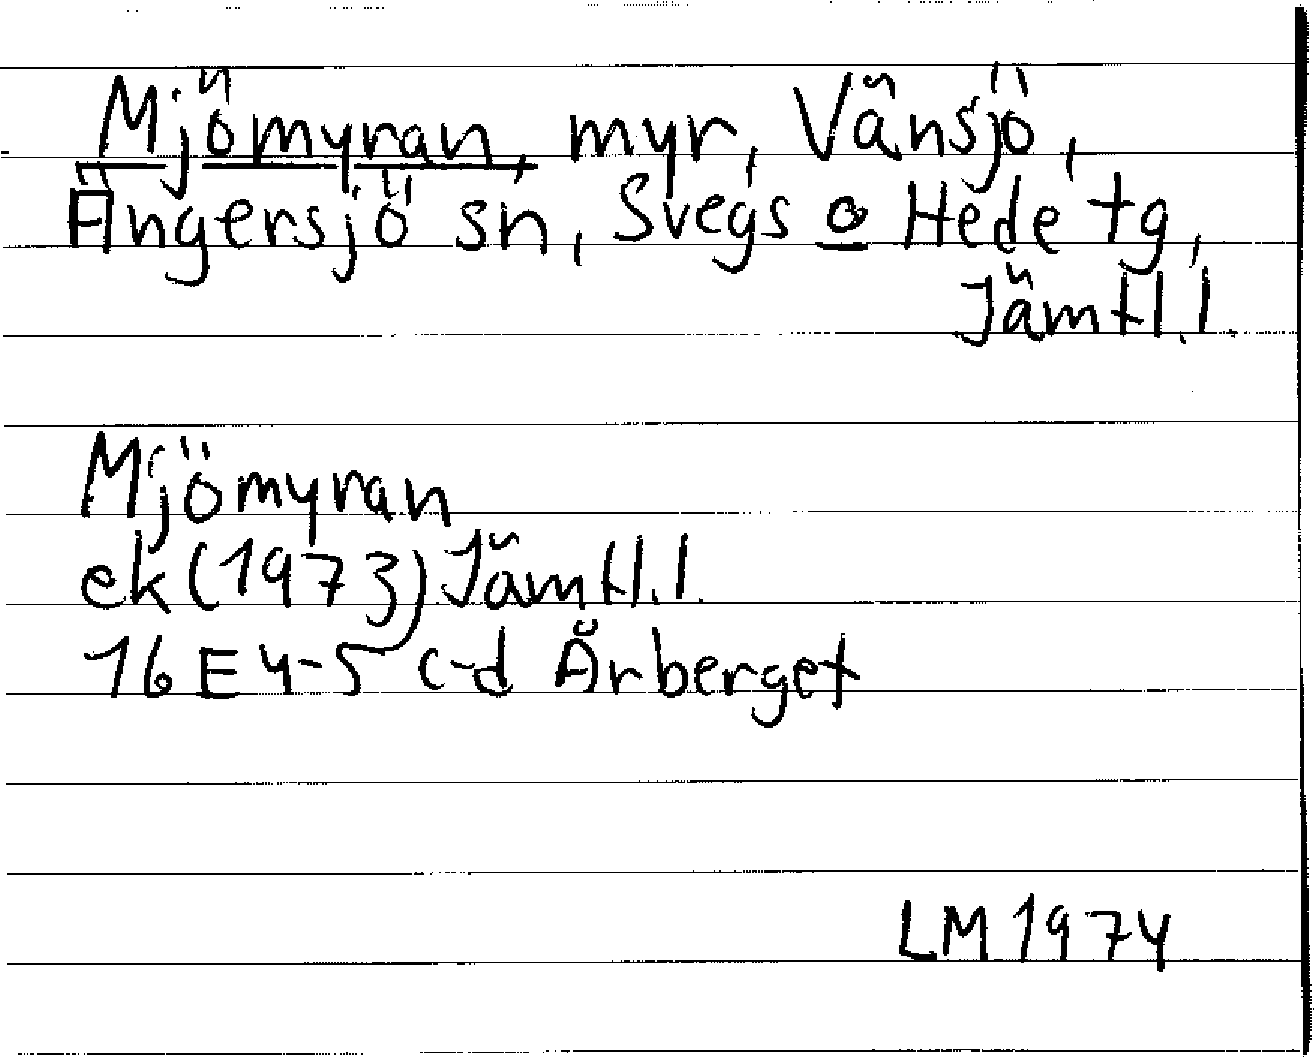 Mjömyran, myr, Vänsjö,
Ängersjö sn, Svegs o Hede tg,
Jämtl.l.
Mjömyran
ek (1973) Jämtl.l.
16E 4-5 c-d Årberget
LM 1974